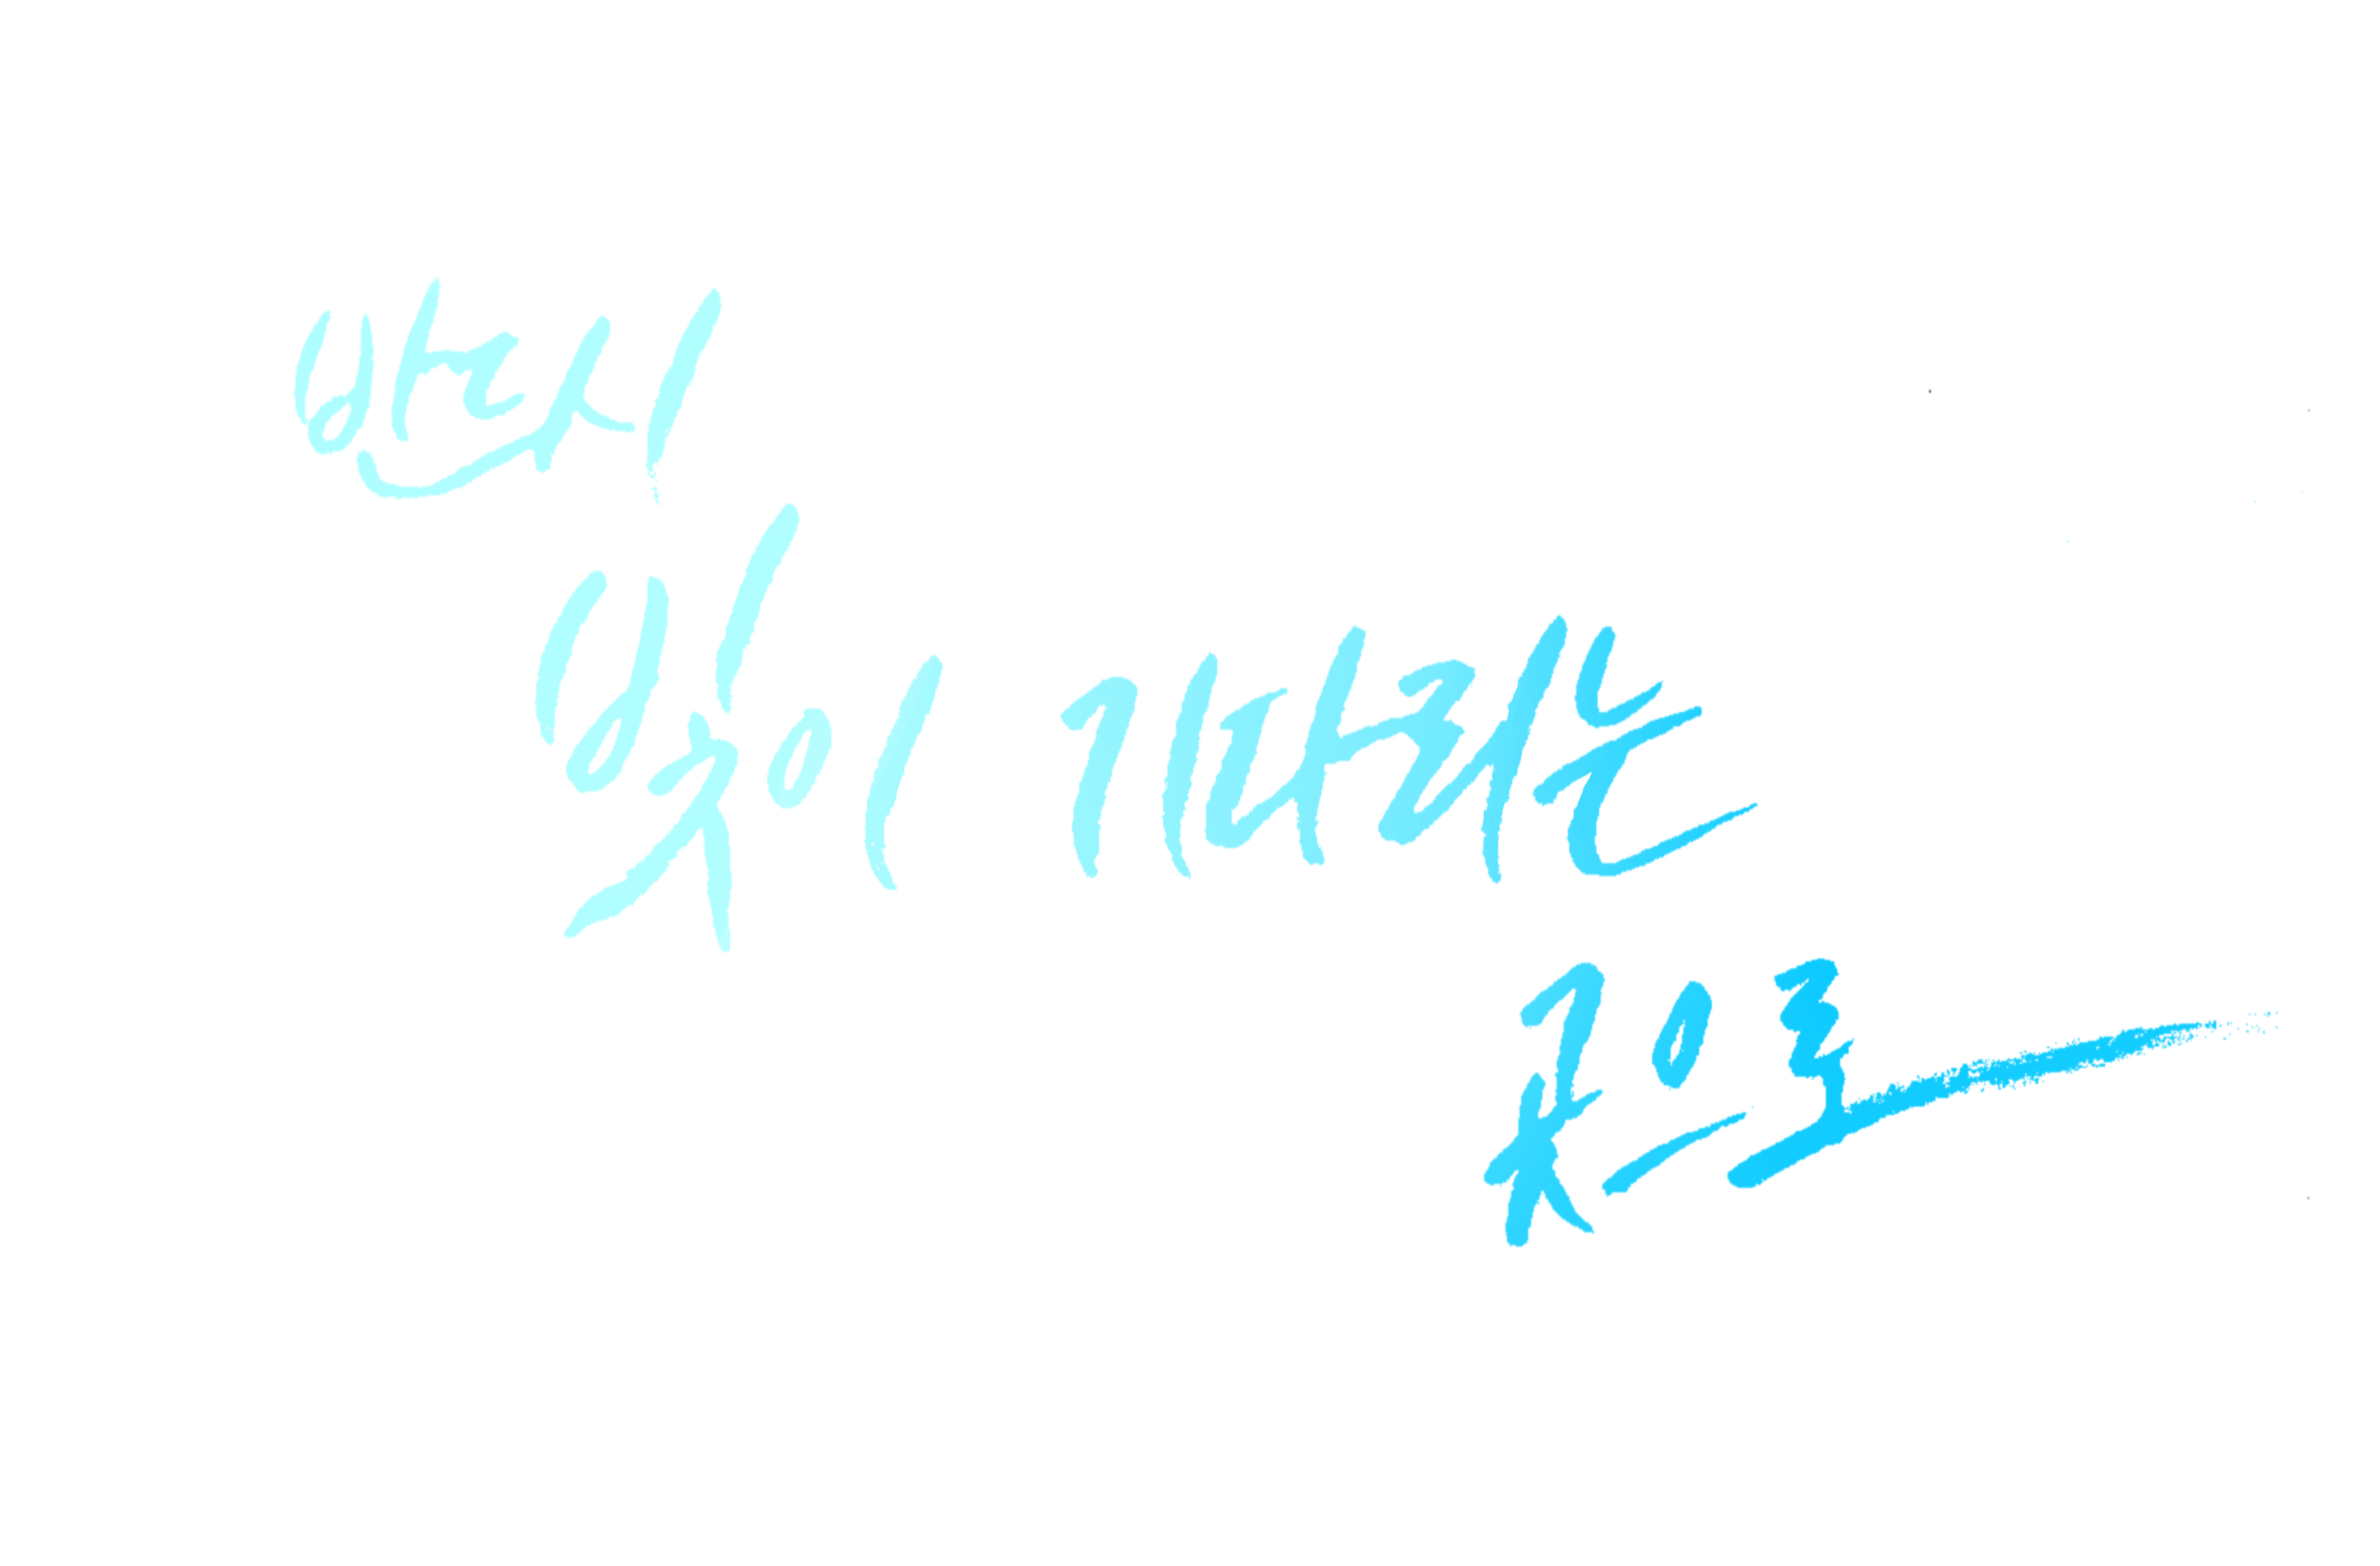 반드시
빛이 기다리는
곳으로